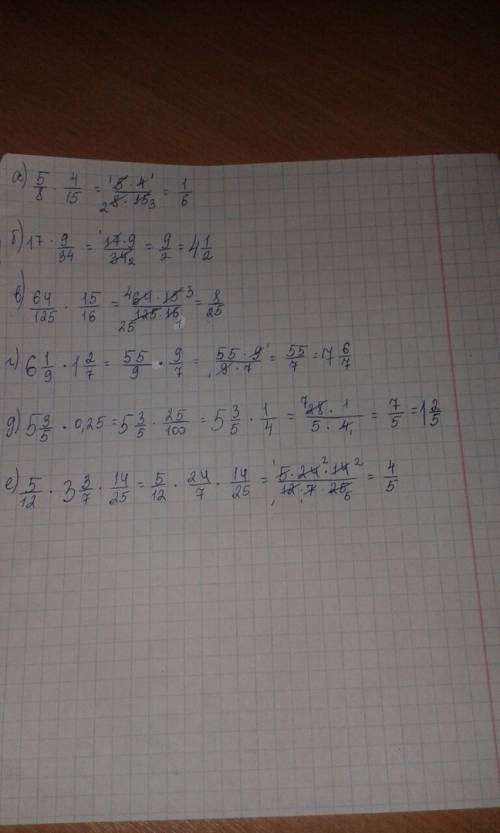 а) 5/8 · 4/15 = 5·4/8·15 = 1/6
б) 17 · 9/34 = 17·9/34 = 9/2 = 4 1/2
в) 64/125 · 15/16 = 64·15/125·16 = /25
г) 6 1/9 · 1 2/7 = 55/9 · 9/7 = 55·9/9·7 = 55/7 = 7 6/7
д) 5 3/5 · 0,25 = 5 3/5 · 25/100 = 5 3/5 · 1/4 = 28·1/5·4 = 7/5 = 1 2/5
е) 5/12 · 3 3/7 · 14/25 = 5/12 · 24/7 · 14/25 = 5·24·14/12·7·25 = 4/5